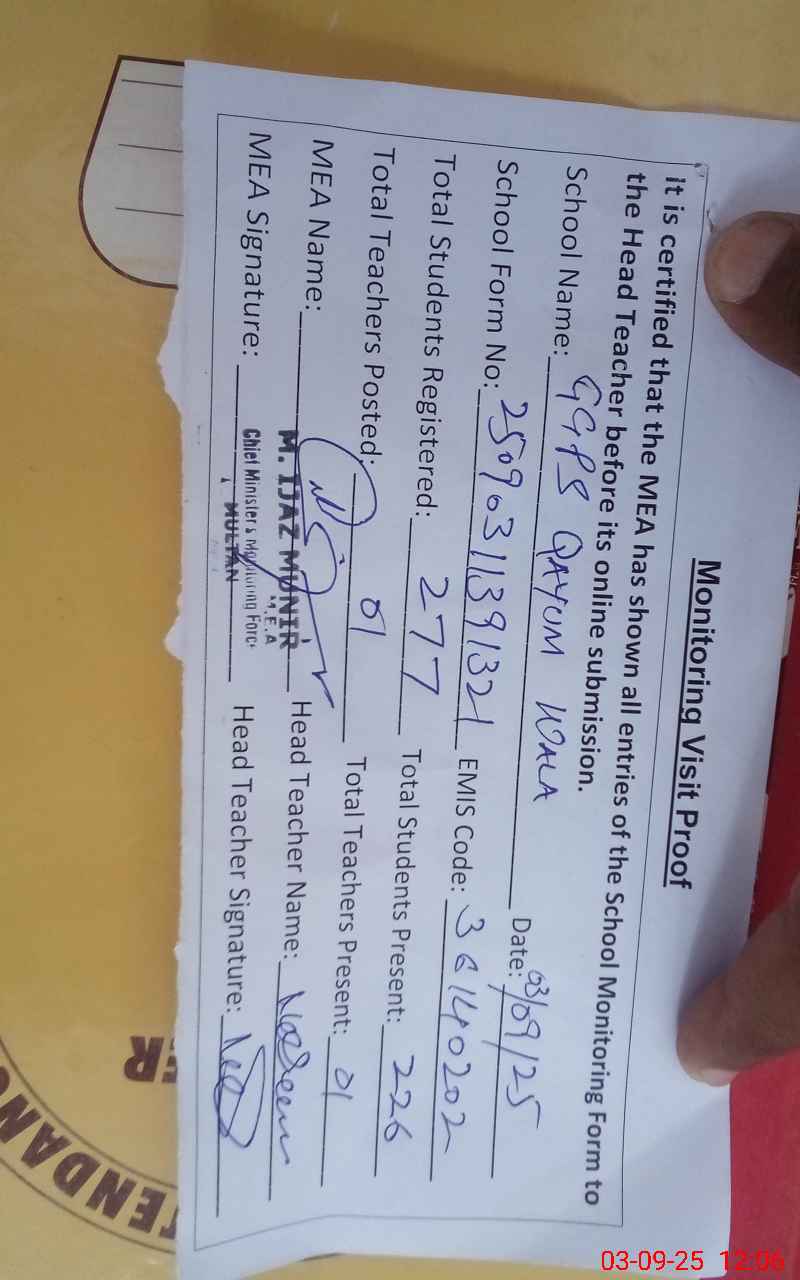 Monitoring Visit Proof
It is certified that the MEA has shown all entries of the School Monitoring Form to
the Head Teacher before its online submission.
School Name: GGPS QAYUM WALA Date: 03/09/25
School Form No: 25090311391321 EMIS Code: 36140202
Total Students Registered: 277 Total Students Present: 226
Total Teachers Posted: 01 Total Teachers Present: 01
MEA Name: M. IJAZ MUNIR Head Teacher Name: Nasreen
M.E.A
MEA Signature: Chief Minister's Monitoring Force Head Teacher Signature:
MULTAN
TENDANC
ER
03-09-25 12:06